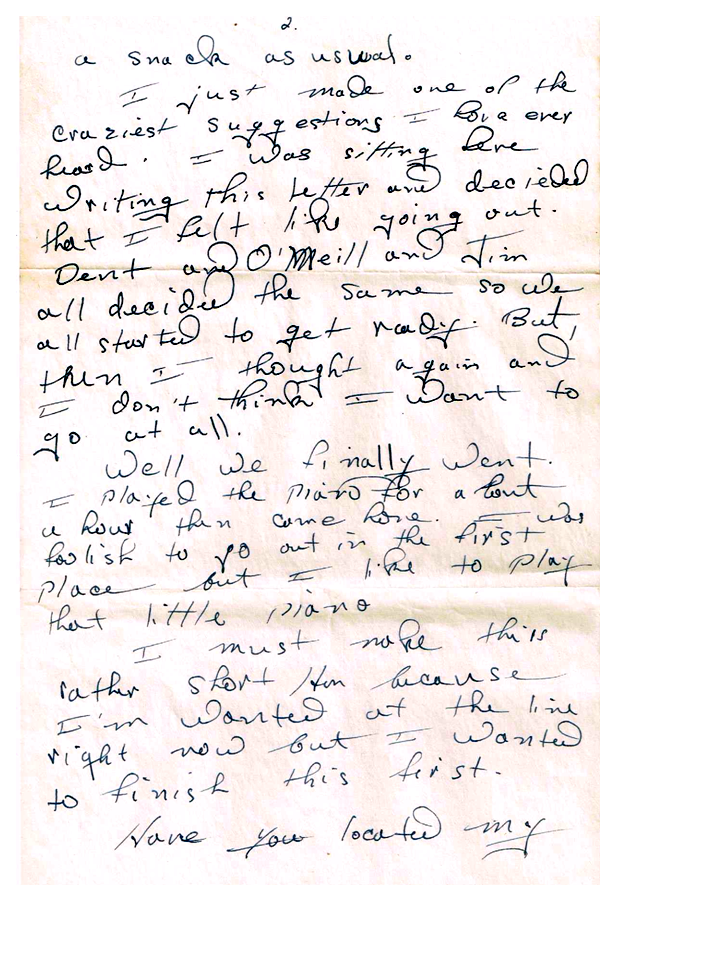 2.
a snack as usual.
I just made one of the
craziest suggestions I have ever
heard. I was sitting here
writing this letter and decided
that I felt like going out.
Dent and O'Meill and Jim
all decided the same so we
all started to get ready. But,
then I thought again and
I don't think I want to
go at all.
Well we finally went.
I played the piano for about
a hour then came home. I was
foolish to go out in the first
place but I like to play
that little piano
I must make this
rather short Hon because
I'm wanted at the line
right now but I wanted
to finish this first.
Have you located my